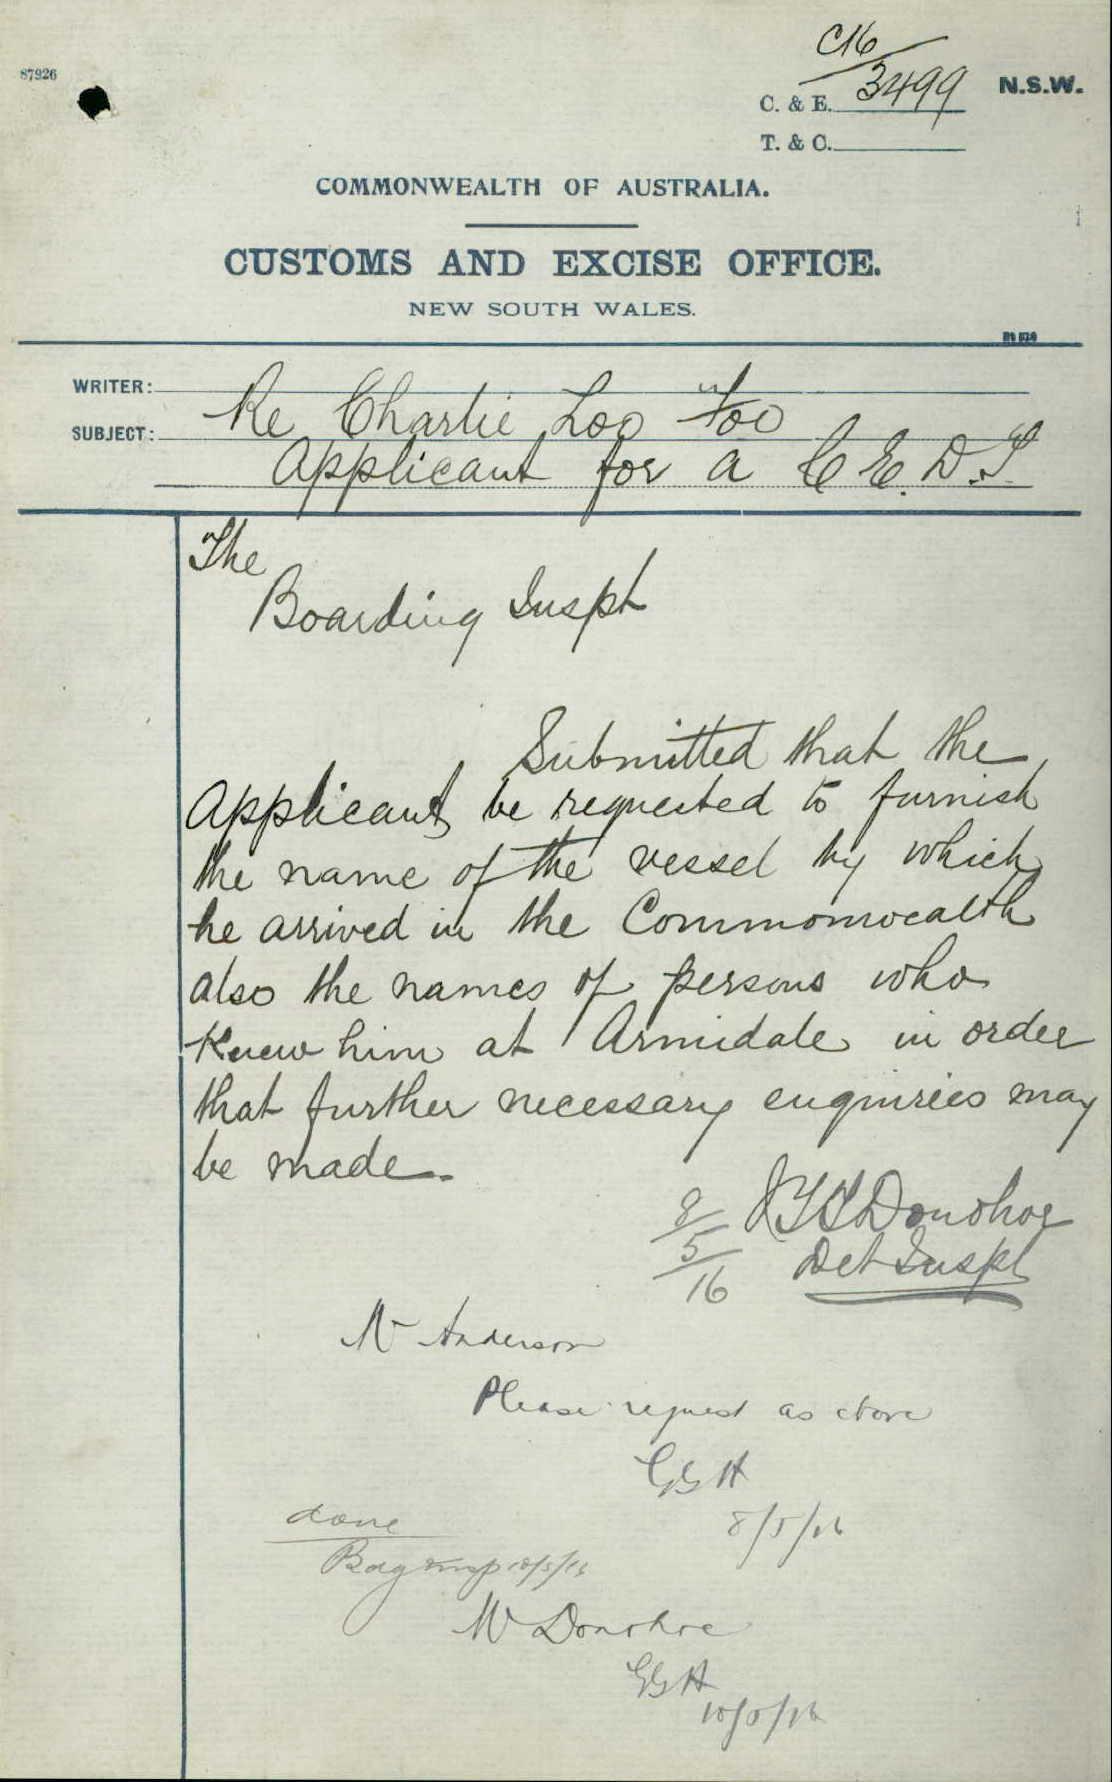 87926
C16
C. & E. 3499 N.S.W.
T. & C.
COMMONWEALTH OF AUSTRALIA.
CUSTOMS AND EXCISE OFFICE.
NEW SOUTH WALES.
WRITER:
SUBJECT: Re Charlie Loo Foo
Applicant for a C.E.D.T
The
Boarding Inspt
Submitted that the
Applicant be requested to furnish
the name of the vessel by which
he arrived in the Commonwealth
also the names of persons who
knew him at Armidale in order
that further necessary enquiries may
be made.
8/5/16 JTTDonohoe
Det Inspt
Mr Anderson
Please request as above
GGH
8/5/16
done
10/5/16
Mr Donohoe
GGH
10/5/16